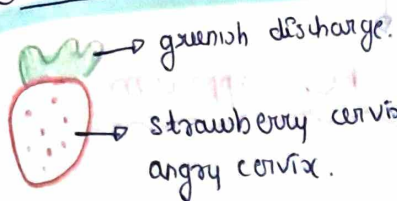 greenish discharge.
strawberry cervix
angry cervix.